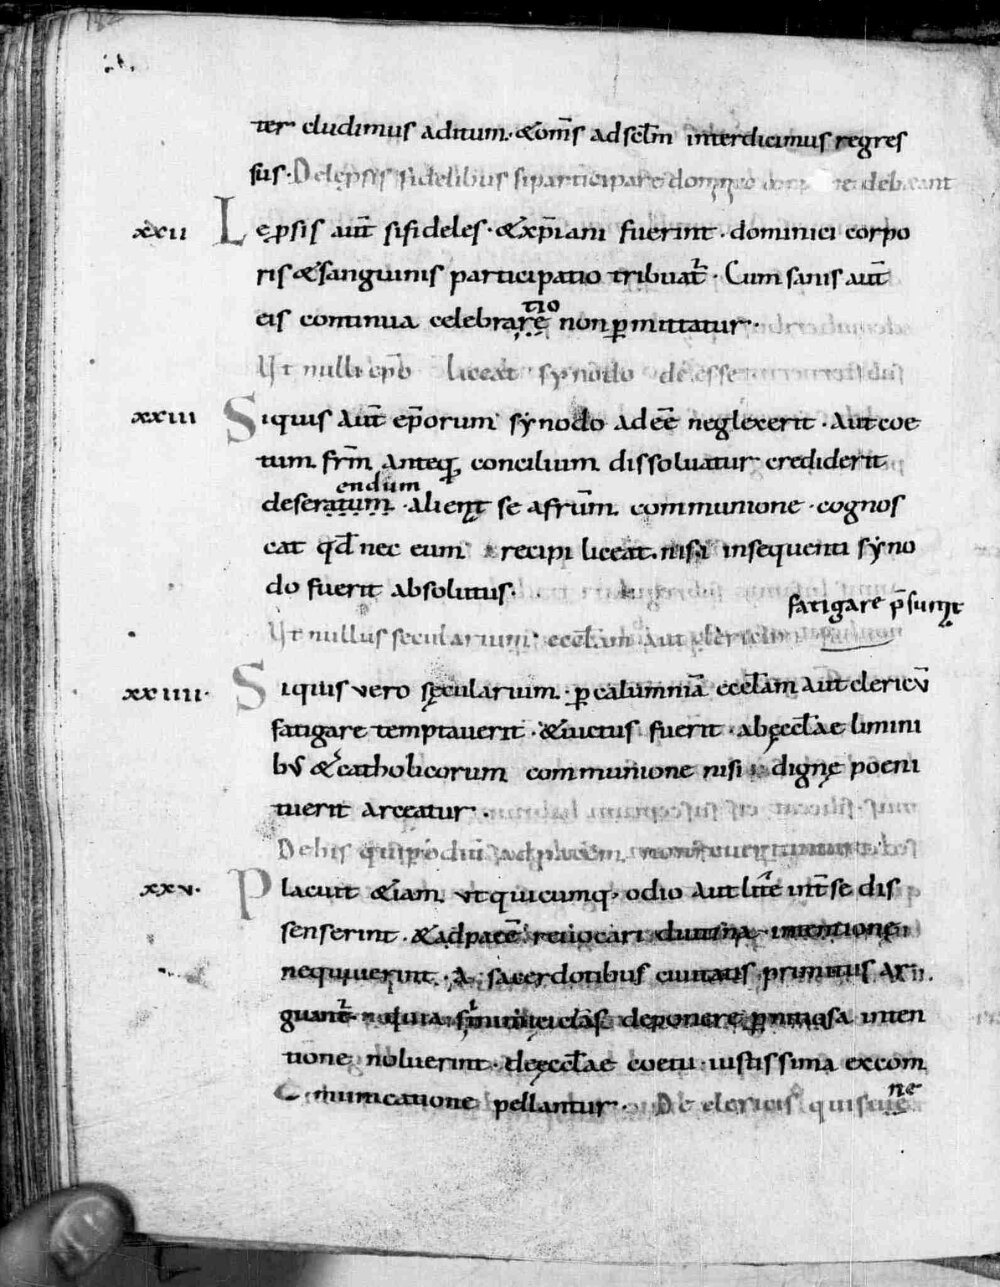 182
ter cludimus aditum · &om̄s adsc̄lm interdicimus regres
sus · Delepsis fidelibus siparticipare debeant
xxii Lepsis aut̄ sifideles · &xp̄iani fuerint · dominici corpo
ris &sanguinis participatio tribuat᷑ · Cum sanis aut̄
tio
eis continua celebrare non p̱mittatur ·
Ut nulli ep̄o liceat synodo deesse
xxiii Siquis aut̄ ep̄orum synodo adeē neglexerit · Aut coe
tum fr̄m anteq̱ concilium dissoluatur crediderit
endum
deseratum · alient se afrūm communione · cognos
cat qđ nec eum recipi liceat · nisi insequenti syno
do fuerit absolutus ·
fatigare p̄sumt
Ut nullus secularium eccłam aut clericum
xxiiii · Siquis vero sęcularium · p̱ calumniā eccłam aut̄ clericū
fatigare temptauerit · &uictus fuerit · abęccłae limini
bꝰ &catholicorum communione nisi digne poeni
tuerit arceatur ·
Dehis qui odiū adpacem non reuertuntur
xxv · Placuit &iam ut quicumq · odio aut lite int̄ se dis
senserint · &adpacē reuocari diutina intentione
nequiuerint · A sacerdotibus ciuitatis primitus ar
guant᷑ · deponere p̱nitiosa inten
tione noluerint · deęccłae coetu iustissima excom
municatione pellantur · De clericis qui
ne